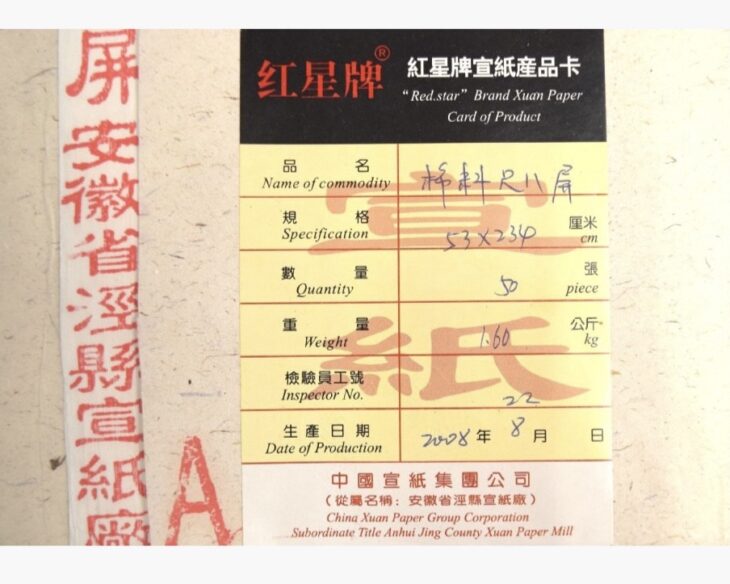 屏安徽省涇縣宣紙廠
A
红星牌®
紅星牌宣紙産品卡
“Red.star” Brand Xuan Paper
Card of Product
品 名
Name of commodity
棉料尺八屏
規 格
Specification
53×234 厘米
cm
數 量
Quantity
50 張
piece
重 量
Weight
1.60 公斤
kg
檢驗員工號
Inspector No.
22
生產日期
Date of Production
2008年 8月 日
宣紙
中國宣紙集團公司
（從屬名稱：安徽省涇縣宣紙廠）
China Xuan Paper Group Corporation
Subordinate Title Anhui Jing County Xuan Paper Mill